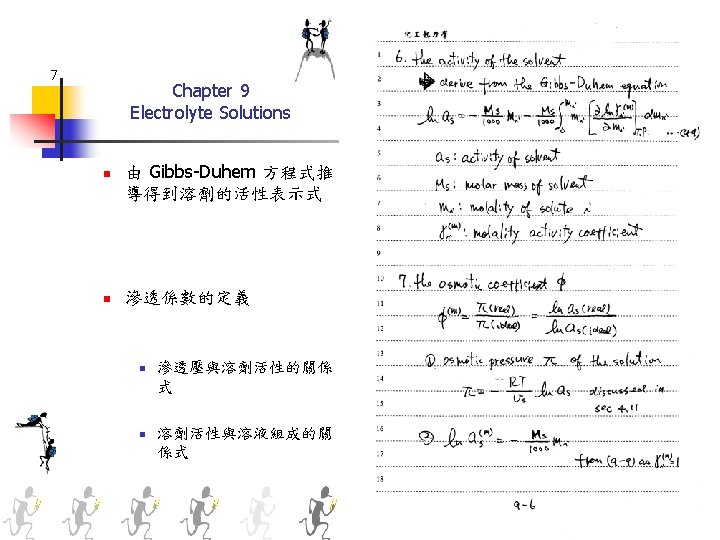 7
Chapter 9
Electrolyte Solutions
由 Gibbs-Duhem 方程式推
導得到溶劑的活性表示式
滲透係數的定義
滲透壓與溶劑活性的關係
式
溶劑活性與溶液組成的關
係式
化工熱力學
1 6. the activity of the solvent
2 derive from the Gibbs-Duhem equation
3 ln a_s = - M_s/1000 m_i - M_s/1000 ∫_0^{m_i} m_i [∂ln γ_i^(m)/∂m_i]_{T,P} dm_i ... (9-9)
4
5 a_s: activity of solvent
6 M_s: molar mass of solvent
7 m_i: molality of solute i
8 γ_i^(m): molality activity coefficient
9
10 7. the osmotic coefficient ϕ
11 ϕ^(m) = π(real)/π(ideal) = ln a_s(real)/ln a_s(ideal)
12
13 ① osmotic pressure π of the solution
14 π = - RT/υ_s ln a_s discussed in
15 sec 4.11
16 ② ln a_s^(m) = - M_s/1000 m_i
17 from (9-9) as γ_i^(m)=1
18
9-6